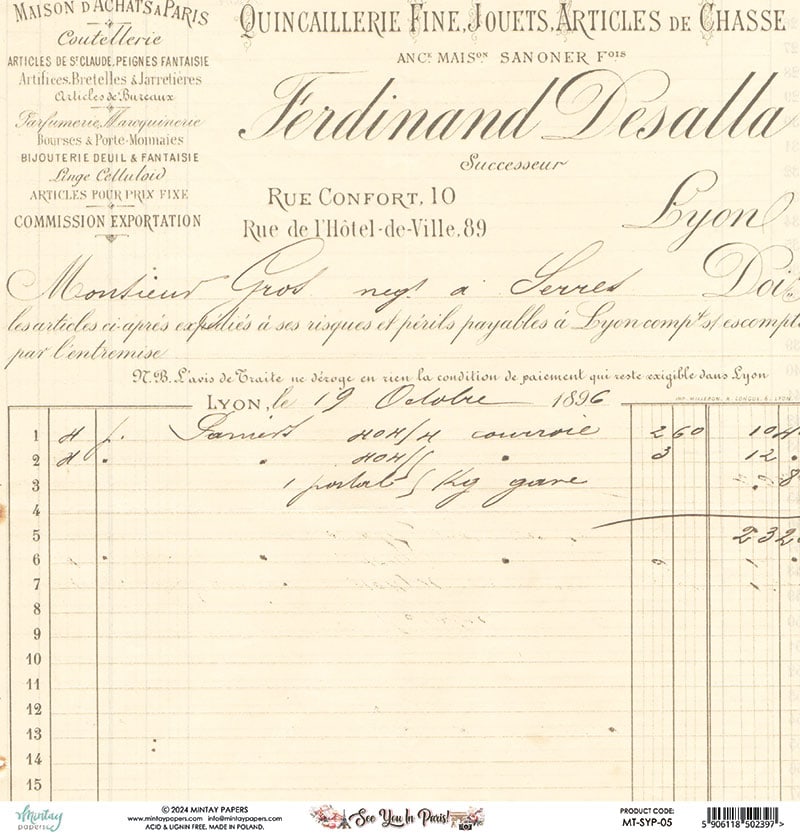 MAISON D'ACHATS A PARIS
Coutellerie
ARTICLES DE ST CLAUDE, PEIGNES FANTAISIE
Artifices, Bretelles & Jarretières
Articles de Bureaux
Parfumerie, Maroquinerie
Bourses & Porte-Monnaies
BIJOUTERIE DEUIL & FANTAISIE
Linge Celluloïd
ARTICLES POUR PRIX FIXE
COMMISSION EXPORTATION
QUINCAILLERIE FINE, JOUETS, ARTICLES DE CHASSE
ANCE MAISON SANONER FOIS
Ferdinand Desalla
Successeur
RUE CONFORT, 10
Rue de l'Hôtel-de-Ville, 89
Lyon
Monsieur Gros negt à Serres Doit
les articles ci-après expédiés à ses risques et périls payables à Lyon compt s/ escompte
par l'entremise
N.B. L'avis de Traite ne déroge en rien la condition de paiement qui reste exigible dans Lyon
LYON, le 19 Octobre 1896
1 404/4 courroie 2 60 104
2 404/5 3 12
3 1 postal Kg gare
4
5 232
6
7
8
9
10
11
12
13
14
15
Mintay papers
© 2024 MINTAY PAPERS
www.mintaypapers.com info@mintaypapers.com
ACID & LIGNIN FREE. MADE IN POLAND.
See You In Paris!
PRODUCT CODE:
MT-SYP-05
5 906118 502397 >